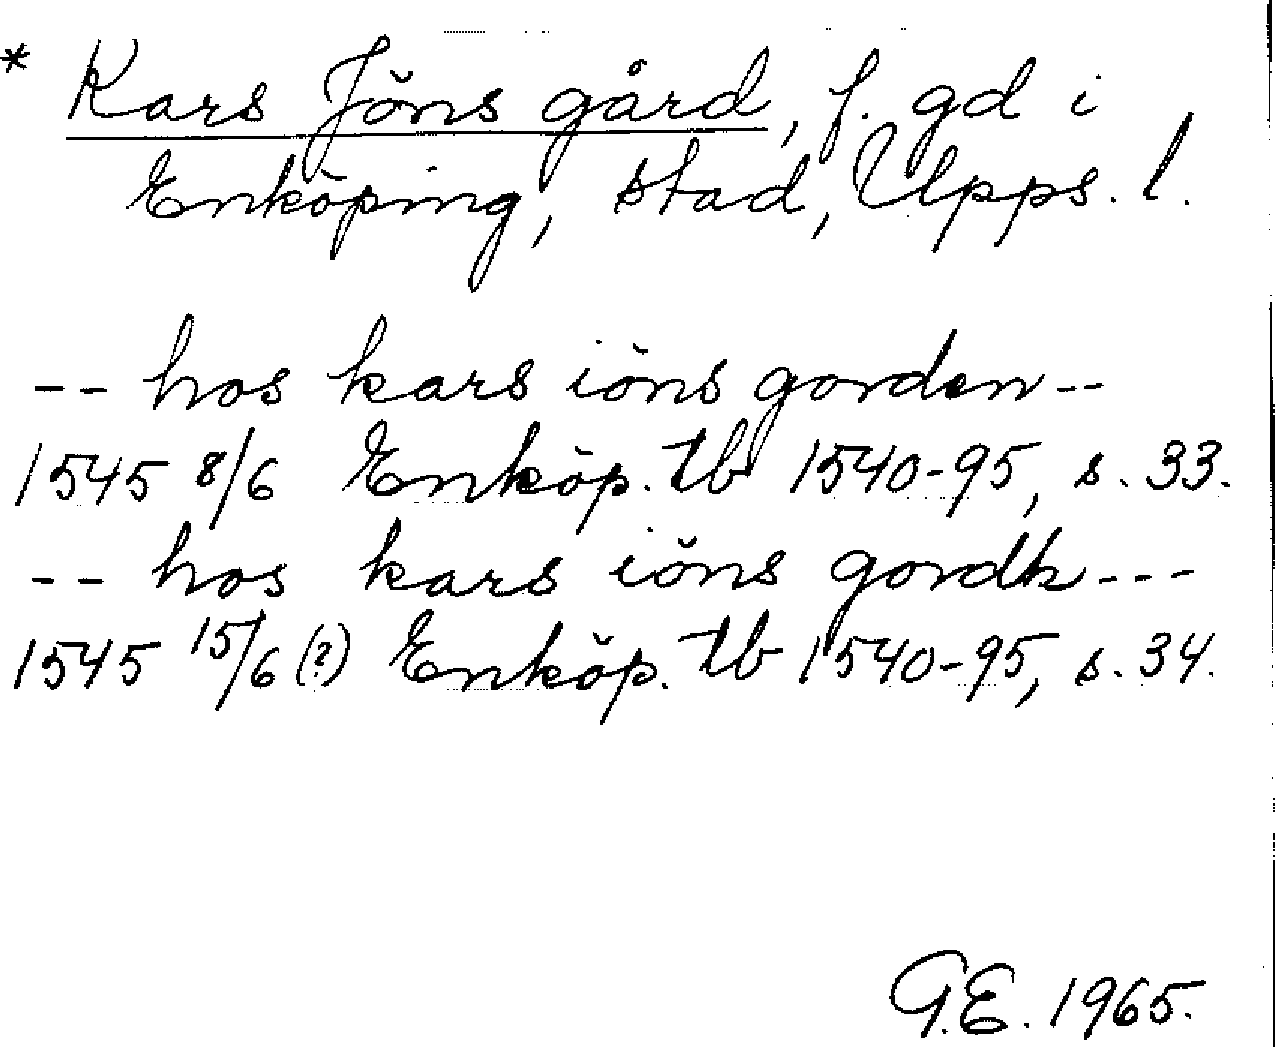 * Kars Jöns gård, f. gd i
Enköping, stad, Upps. l.
-- hos kars iöns gorden --
1545 8/6 Enköp. tb 1540-95, s. 33.
-- hos kars iöns gordh ---
1545 15/6 (?) Enköp. tb 1540-95, s. 34.
G.E. 1965.